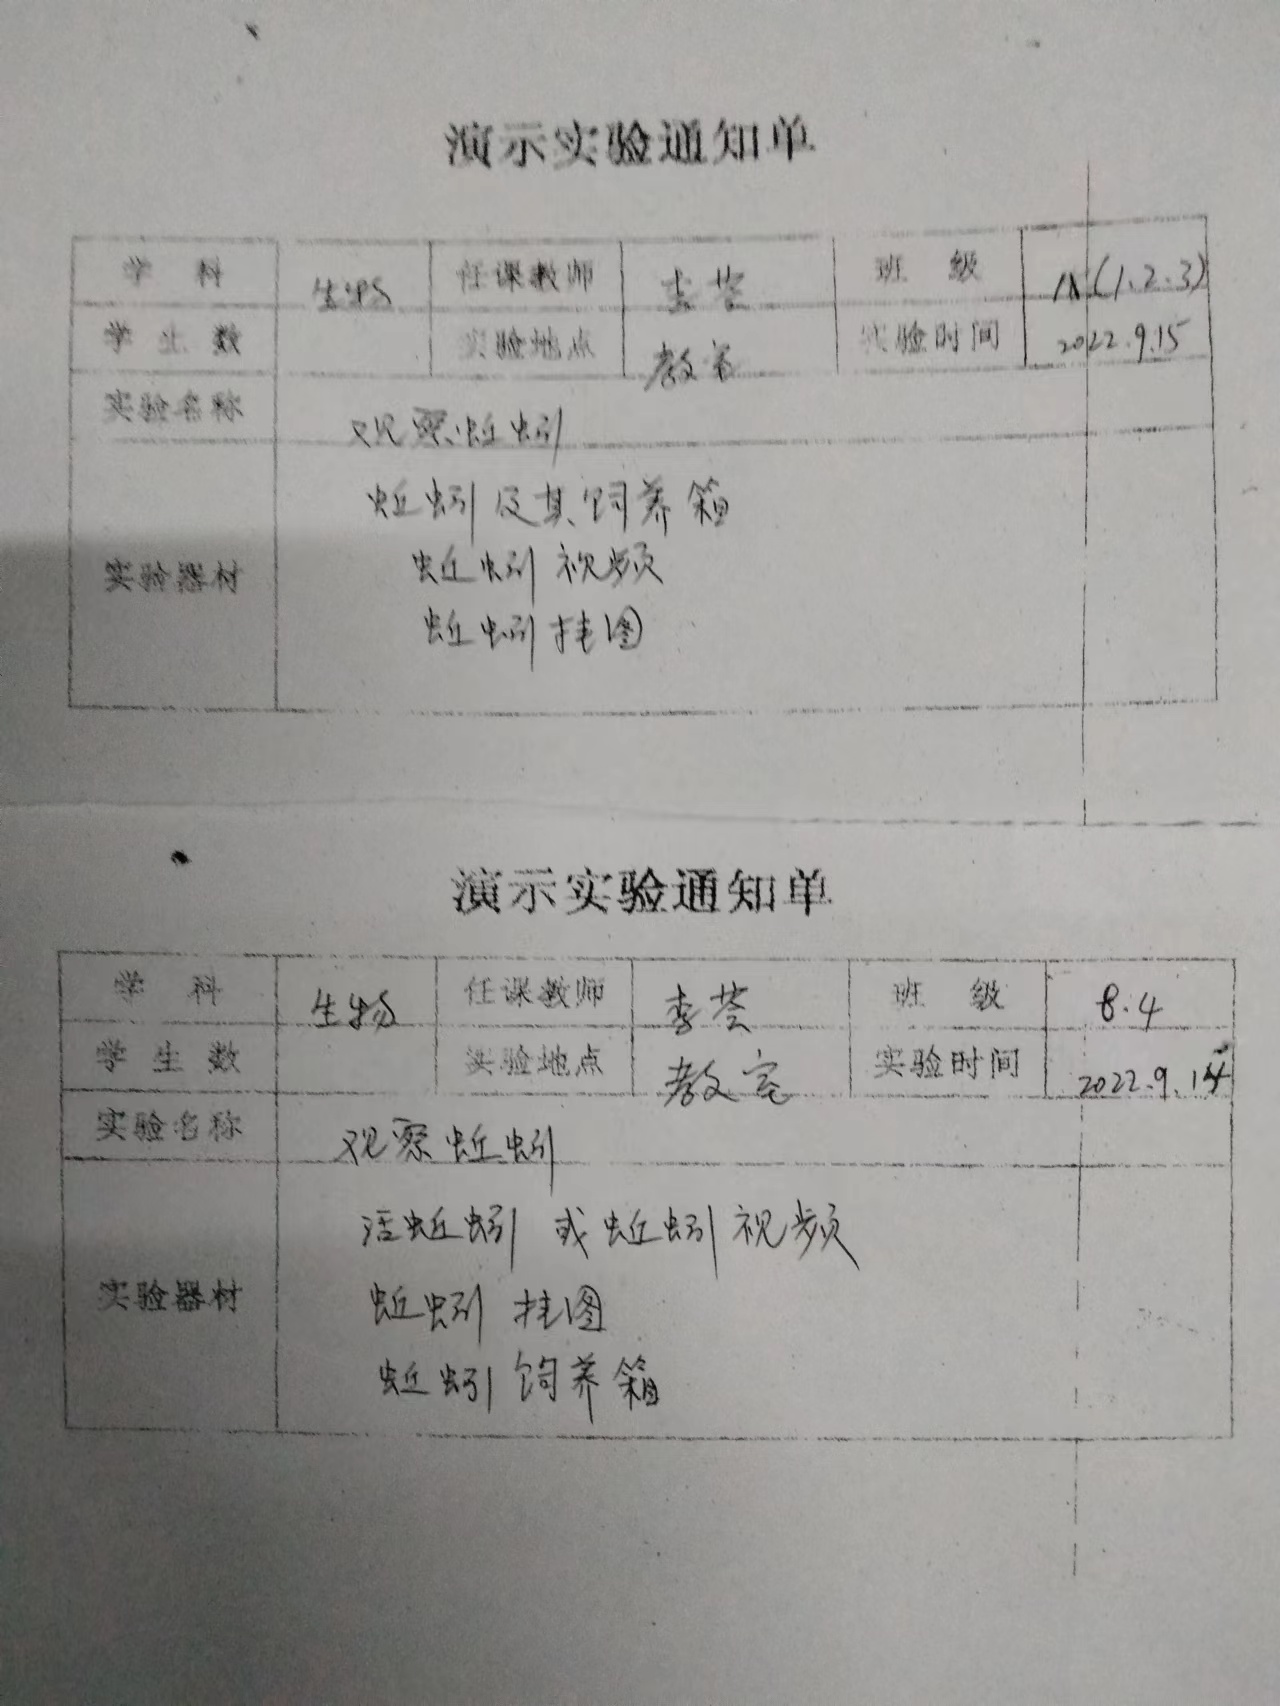 演示实验通知单
学 科 生物 任课教师 李荟 班 级 八(1.2.3)
学 生 数 实验地点 教室 实验时间 2022.9.15
实验名称 观察蚯蚓
蚯蚓及其饲养箱
实验器材 蚯蚓视频
蚯蚓挂图
演示实验通知单
学 科 生物 任课教师 李荟 班 级 8.4
学 生 数 实验地点 教室 实验时间 2022.9.14
实验名称 观察蚯蚓
活蚯蚓 或蚯蚓视频
实验器材 蚯蚓挂图
蚯蚓饲养箱